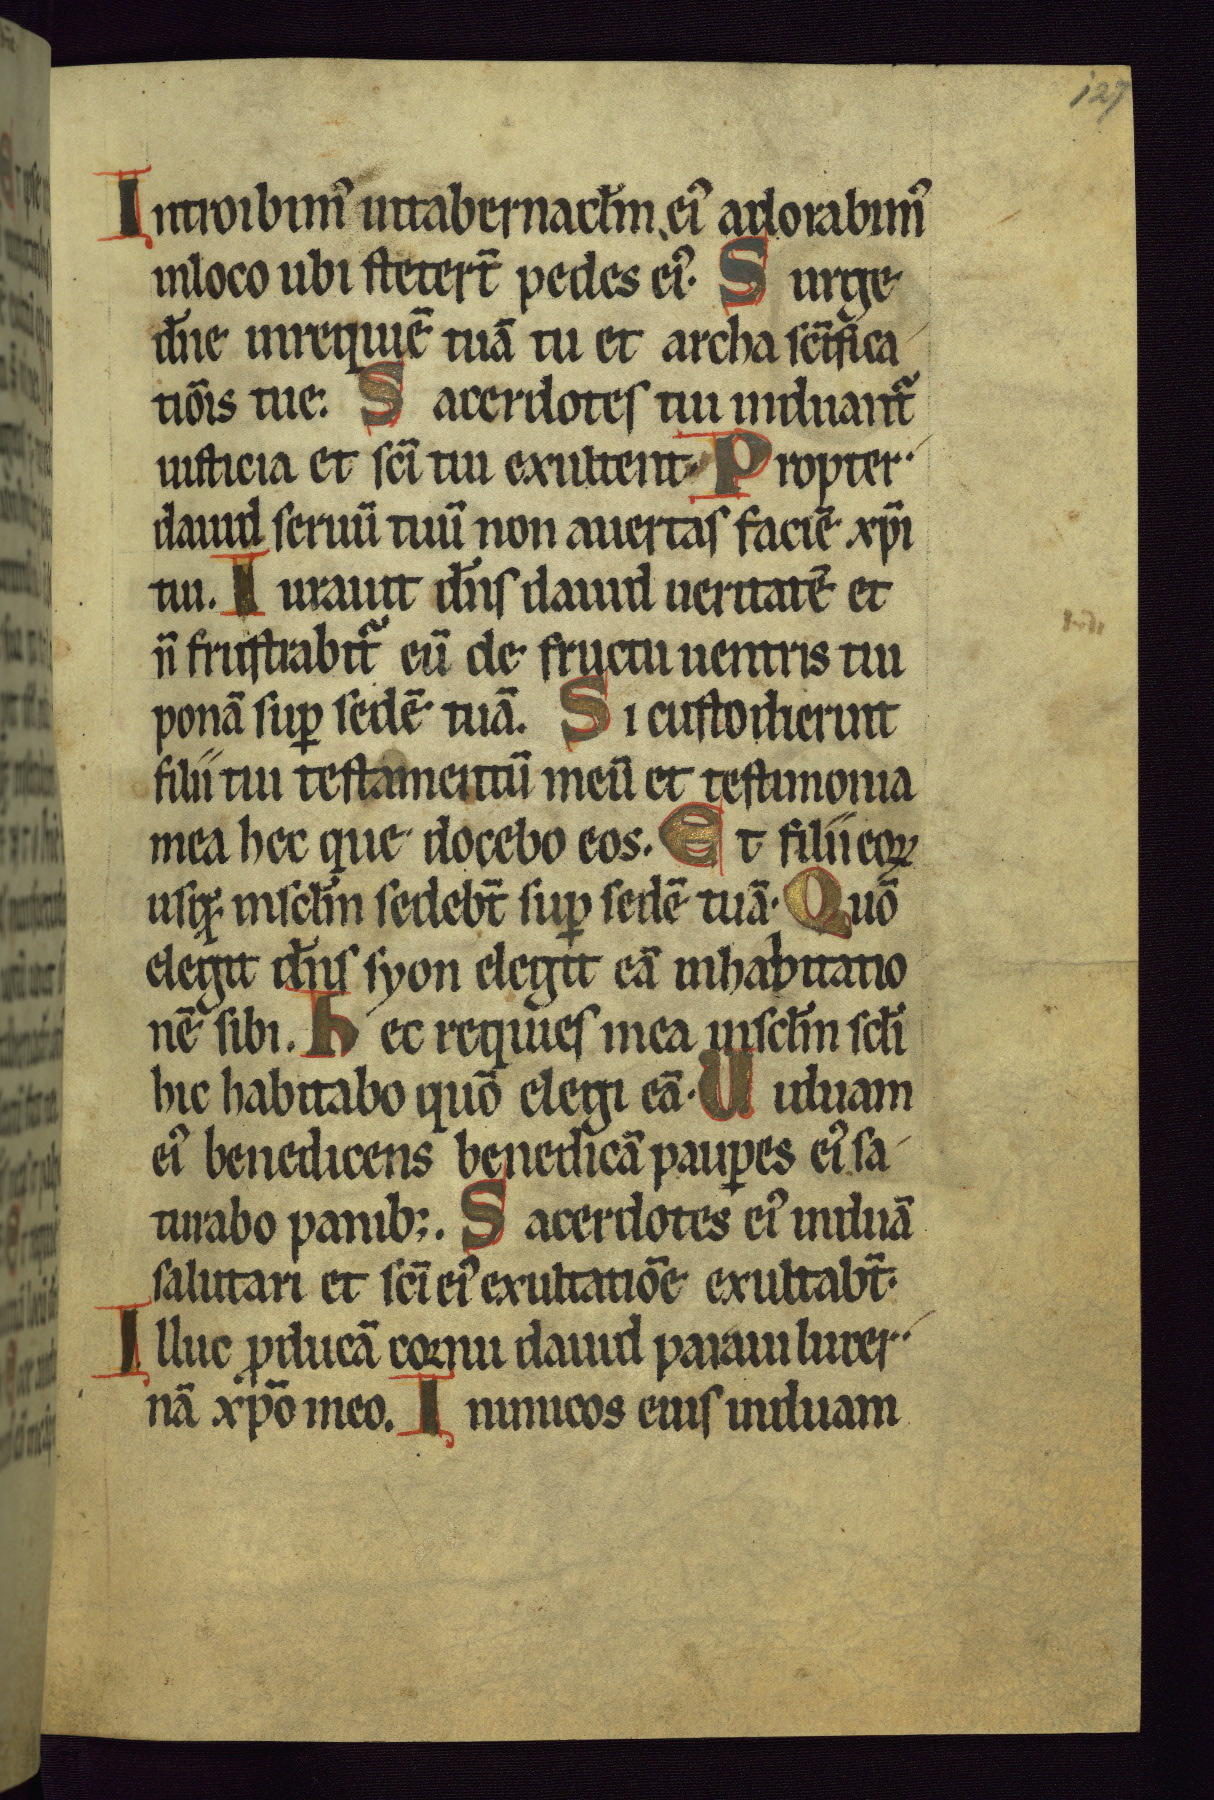 127
Introibim᾿ intabernacłm ei᾿ adorabim᾿
inloco ubi stetert̄ pedes ei᾿. Surge
dn̄e inrequiē tuā tu et archa scīfica
tiōis tue. Sacerdotes tui induant᷑
iusticia et scī tui exultent. Propter
dauid seruū tuū non auertas faciē xp̄i
tui. Iurauit dn̄s dauid ueritatē et
n̄ frustrabit᷑ eū de fructu uentris tui
ponā suꝑ sedē tuā. Si custodierint
filii tui testamentū meū et testimonia
mea hec que docebo eos. Et filii eoꝝ
usqꝫ inscłm sedebt̄ suꝑ sedē tuā. Quō
elegit dn̄s syon elegit eā inhabitatio
nē sibi. Hec requies mea inscłm scłi
hic habitabo quō elegi eā. Uiduam
ei᾿ benedicens benedicā pauꝑes ei᾿ sa
turabo panibꝫ. Sacerdotes ei᾿ induā
salutari et scī ei᾿ exultatiōe exultabt̄.
Illuc ꝓducā cornu dauid paraui lucer
nā xp̄o meo. Inimicos eius induam